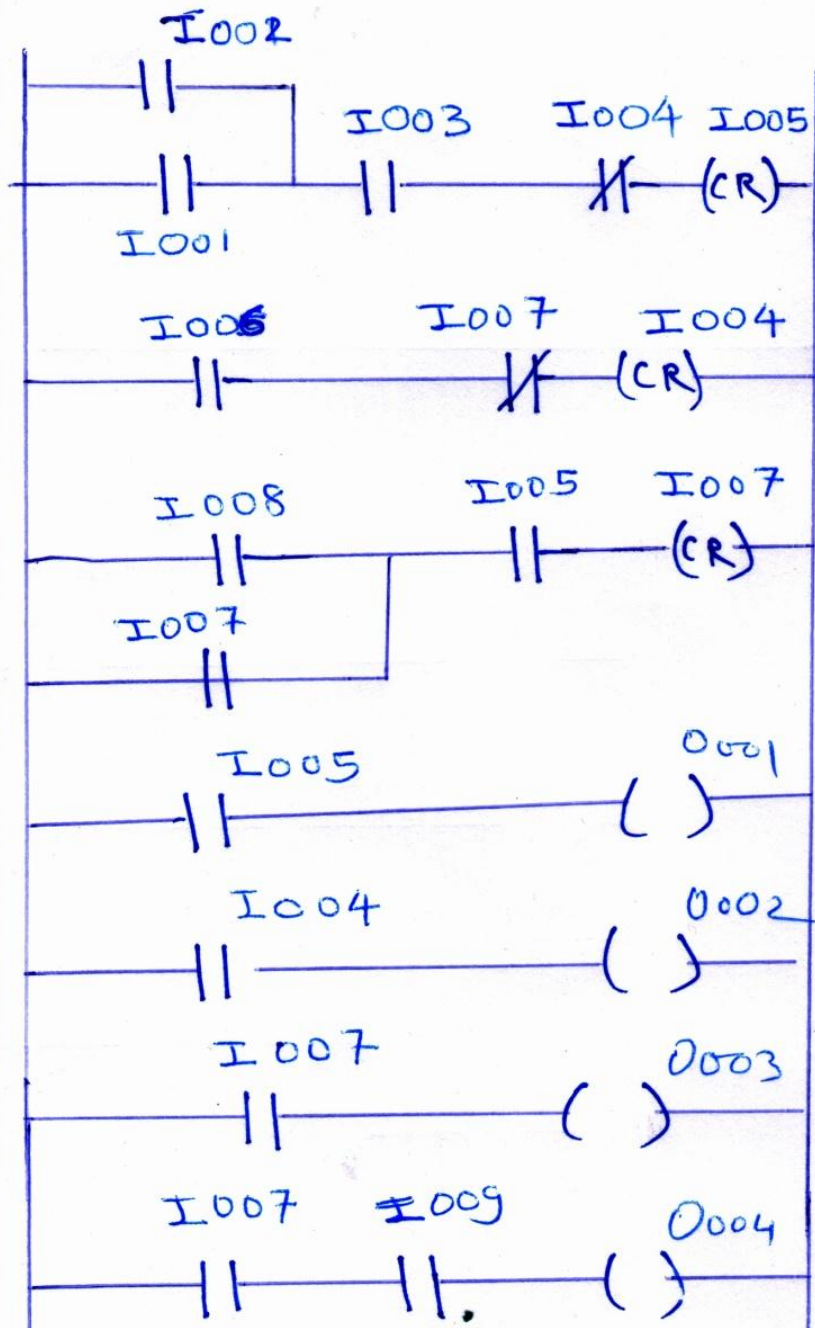 I002
I003 I004 I005
(CR)
I001
I006 I007 I004
(CR)
I008 I005 I007
(CR)
I007
I005 0001
I004 0002
I007 0003
I007 I009 0004